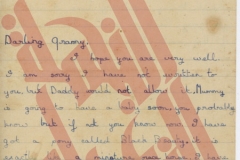 Darling Granny,
I hope you are very well.
I am sorry I have not written to
you, but Daddy would not allow it. Mummy
is going to have a baby soon you probably
know but if not you know now. I have
got a pony called Black Dandy, it is
a miniature race horse I have